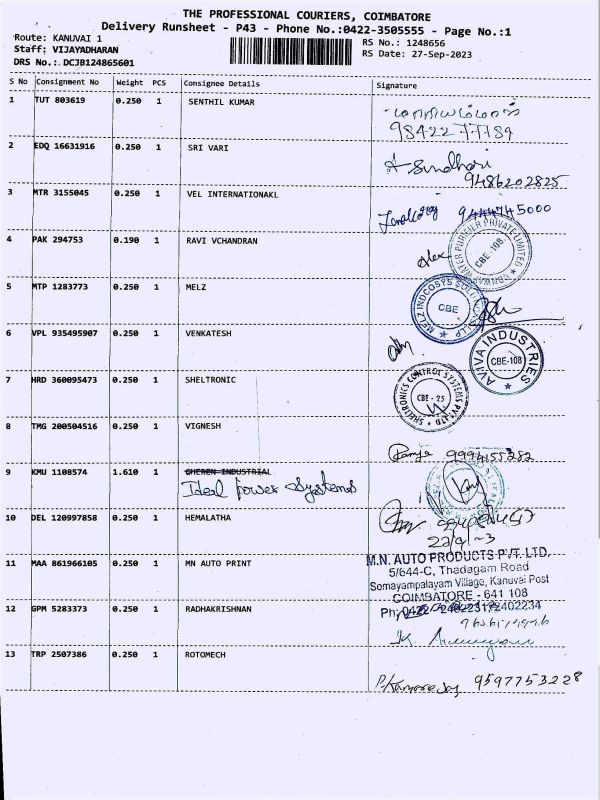 THE PROFESSIONAL COURIERS, COIMBATORE
Delivery Runsheet - P43 - Phone No.:0422-3505555 - Page No.:1
Route: KANUVAI 1
RS No.: 1248656
Staff: VIJAYADHARAN
RS Date: 27-Sep-2023
DRS No.: DCJB124865601
S No Consignment No Weight PCS Consignee Details Signature
1 TUT 803619 0.250 1 SENTHIL KUMAR
2 EDQ 16631916 0.250 1 SRI VARI
9486202825
3 MTR 3155045 0.250 1 VEL INTERNATIONAKL
9444745000
4 PAK 294753 0.190 1 RAVI VCHANDRAN
WATER PURIFIER PRIVATE LIMITED
CBE-108
5 MTP 1283773 0.250 1 MELZ
MELZ INDCOSYS
CBE
6 VPL 935495907 0.250 1 VENKATESH
AVIVA INDUSTRIES
CBE-108
7 HRD 360095473 0.250 1 SHELTRONIC
SHELTRONICS CONTROL SYSTEMS PVT.LTD
CBE - 25
8 TMG 200504516 0.250 1 VIGNESH
9994155252
9 KMU 1108574 1.610 1 GHEREN INDUSTRIAL
Ideal power Systems
10 DEL 120997858 0.250 1 HEMALATHA
11 MAA 861966105 0.250 1 MN AUTO PRINT
M.N. AUTO PRODUCTS PVT. LTD.
5/644-C, Thadagam Road
Somayampalayam Village, Kanuvai Post
COIMBATORE - 641 108
12 GPM 5283373 0.250 1 RADHAKRISHNAN
13 TRP 2507386 0.250 1 ROTOMECH
9597753228